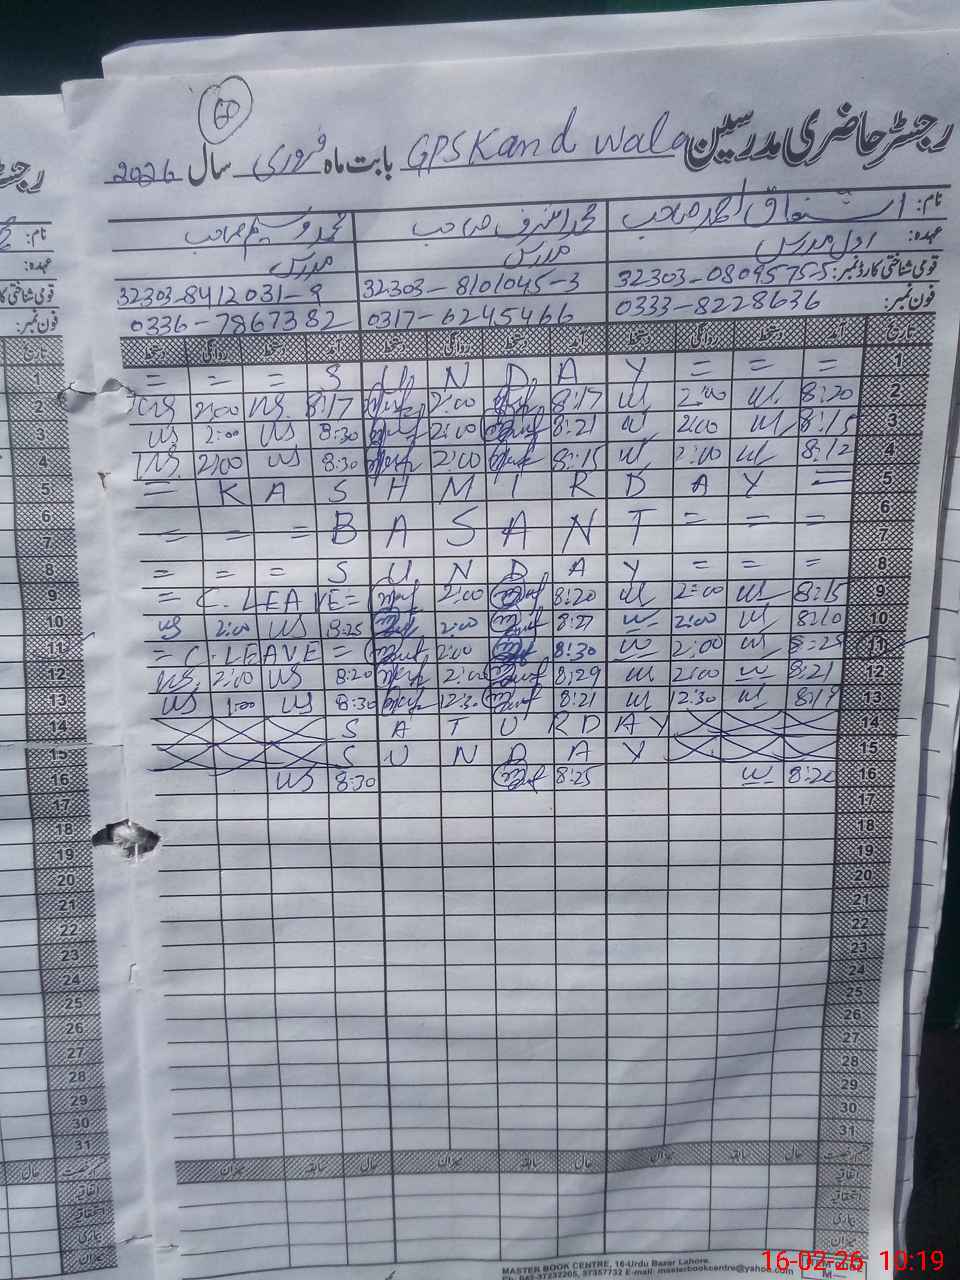 60
رجسٹر حاضری مدرسین GPS Kand Wala بابت ماہ فروری سال 2026
نام: اشفاق احمد صاحب محمد اشرف صاحب محمد وسیم صاحب
عہدہ: اول مدرس مدرس مدرس
قومی شناختی کارڈ نمبر: 32303-8101045-3 32303-8412031-9
فون نمبر: 0333-8228636 0317-6245466 0336-7867382
تاریخ آمد دستخط روانگی دستخط آمد دستخط روانگی دستخط آمد دستخط روانگی دستخط
1 = = = S U N D A Y = = =
2 8:20 2:00 8:17 2:00 8:17 2:00
3 8:15 2:00 8:21 2:00 8:30 2:00
4 8:12 2:00 8:15 2:00 8:30 2:00
5 = K A S H M I R D A Y =
6
7 = = = B A S A N T = = =
8 = = = S U N D A Y = = =
9 8:15 2:00 8:20 2:00 = C. LEAVE =
10 8:10 2:00 8:27 2:00 8:25 2:00
11 8:25 2:00 8:30 2:00 = C. LEAVE =
12 8:21 2:00 8:29 2:00 8:20 2:00
13 8:17 12:30 8:21 12:30 8:30 1:00
14 S A T U R D A Y
15 S U N D A Y
16 8:20 8:25 8:30
17
18
19
20
21
22
23
24
25
26
27
28
29
30
31
حال سابقہ میزان حال سابقہ میزان حال سابقہ میزان
اتفاقیہ
استحقاقیہ
بیماری
میزان
MASTER BOOK CENTRE, 16-Urdu Bazar Lahore.
Ph: 042-37232205, 37357732 E-mail: masterbookcentre@yahoo.com
16-02-26 10:19